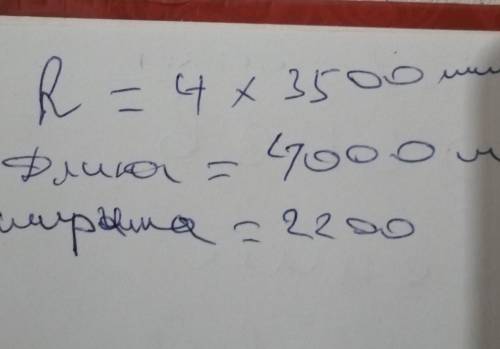 R = 4 x 3500 мм
Длина = 4000 м
ширина = 2200